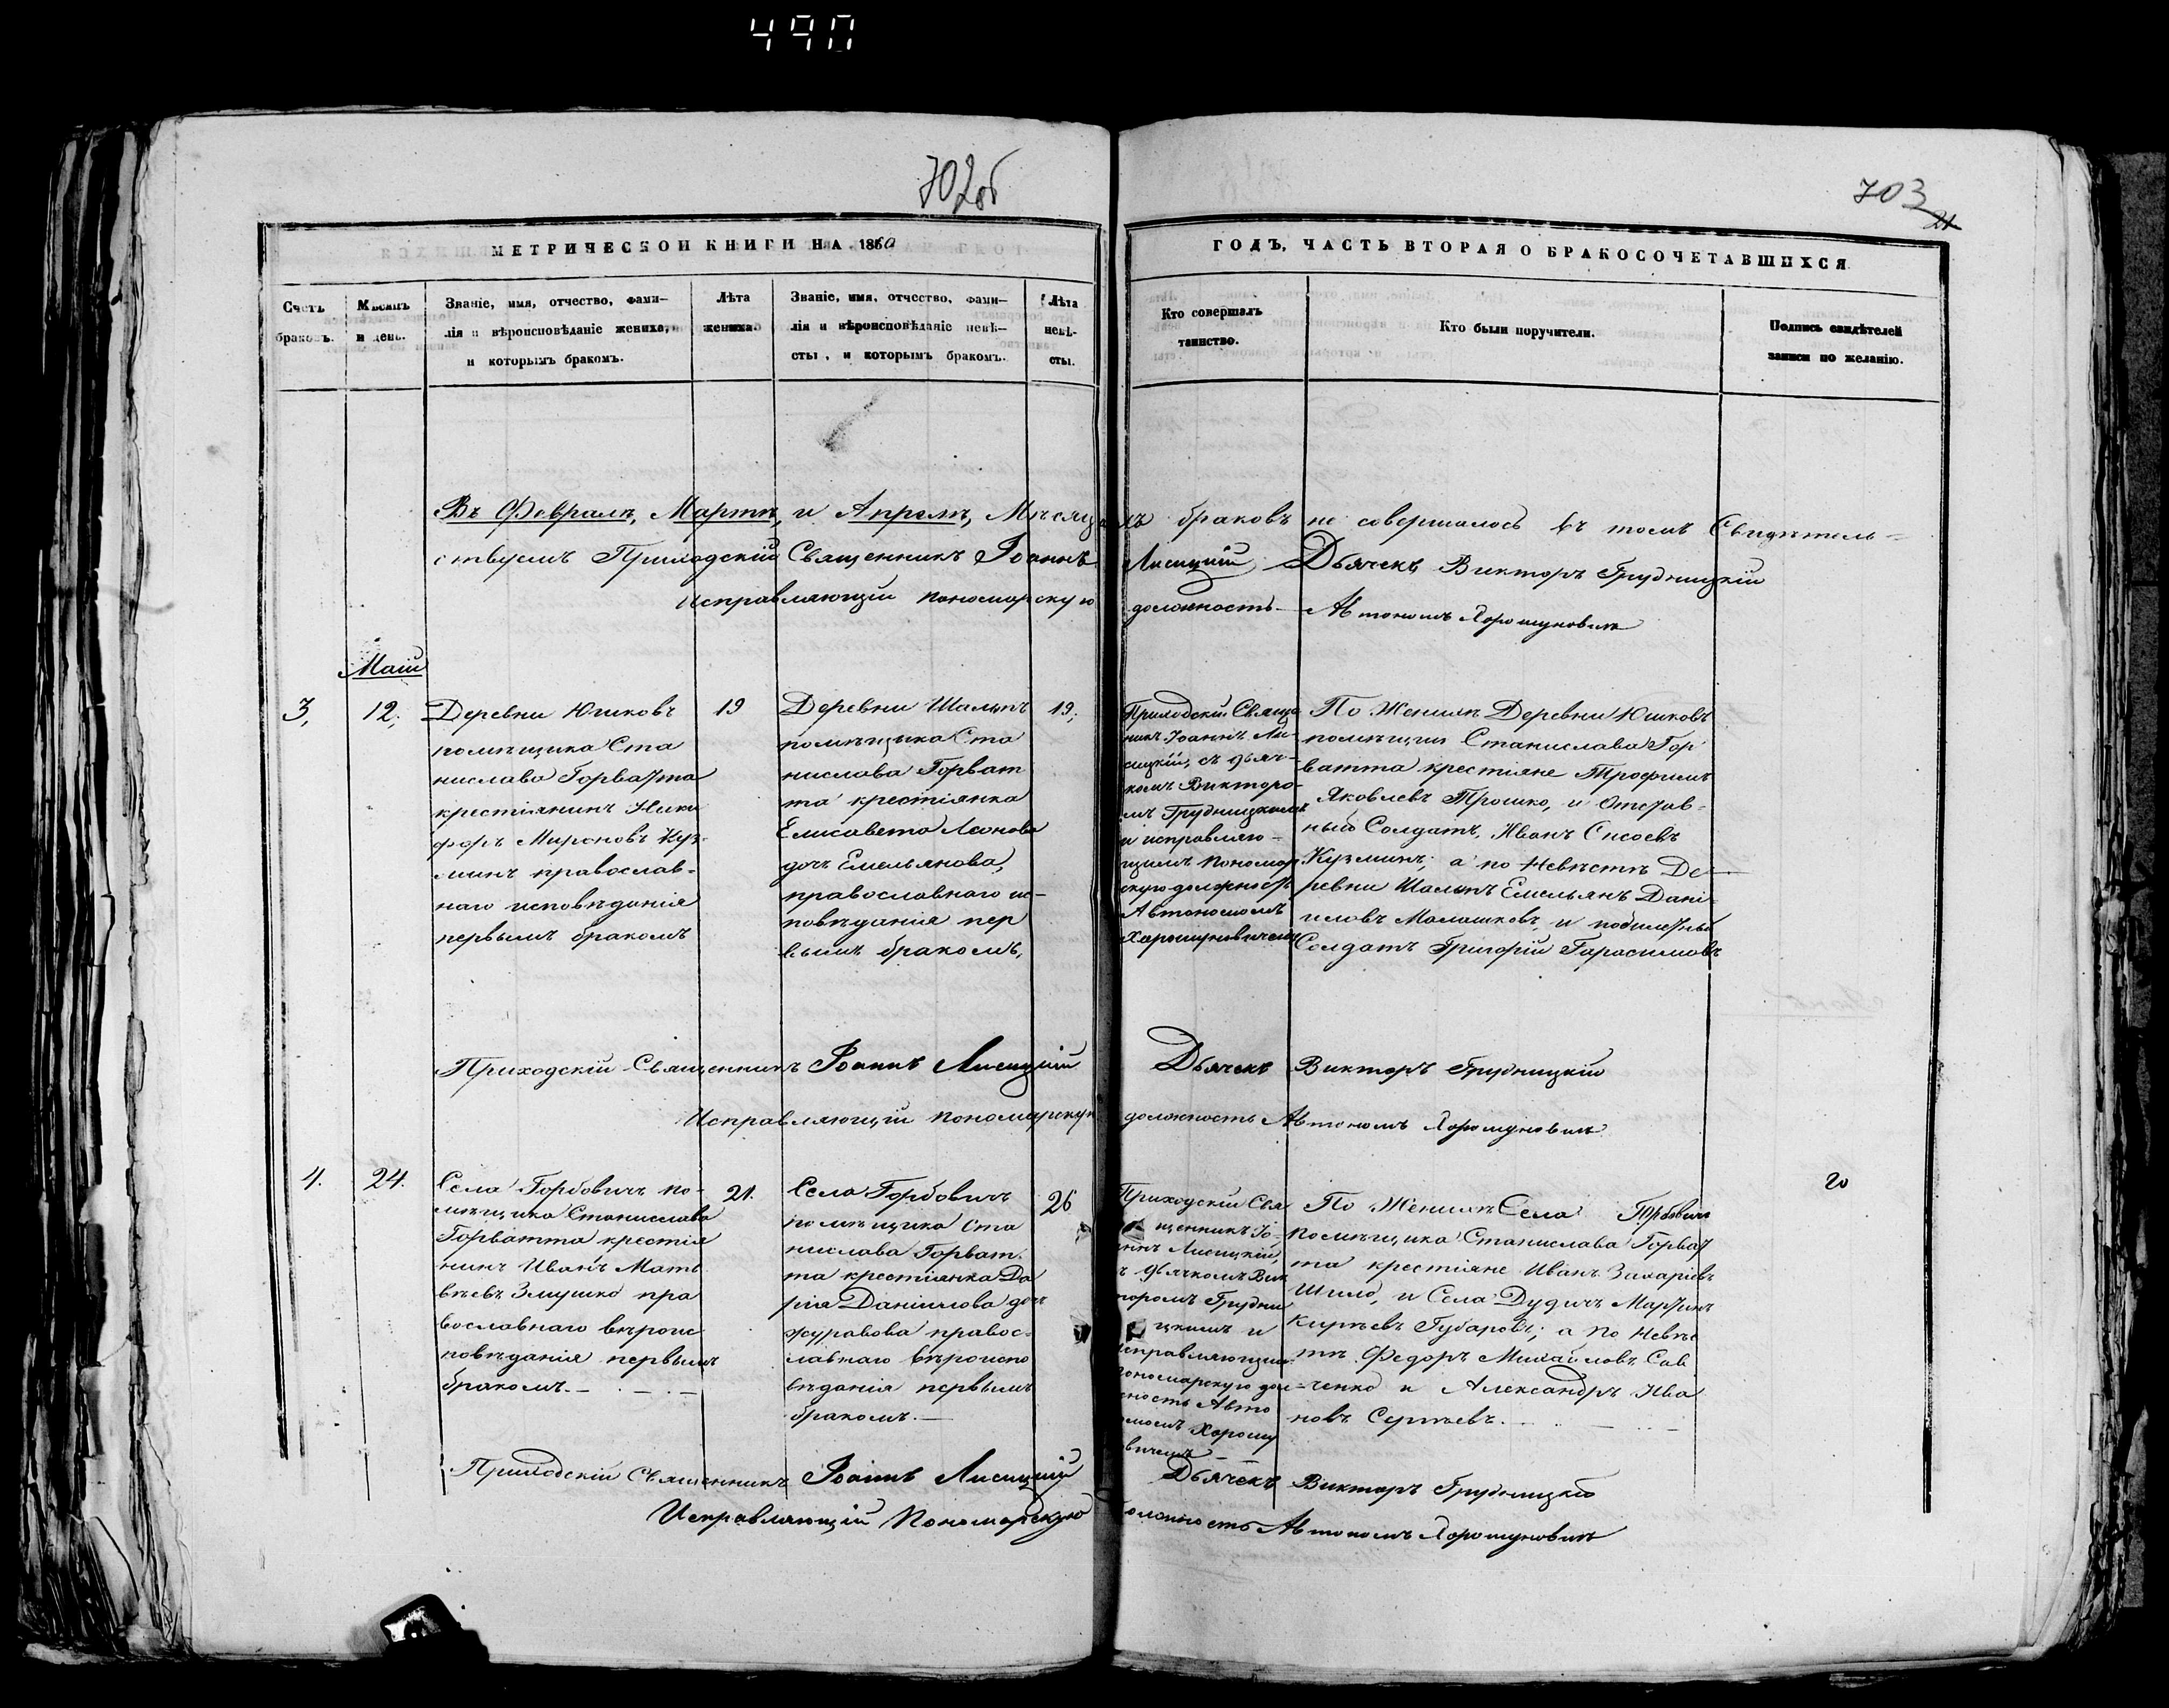 490
702об
703
21
МЕТРИЧЕСКОЙ КНИГИ НА 1860
ГОДЪ, ЧАСТЬ ВТОРАЯ О БРАКОСОЧЕТАВШИХСЯ
Счетъ
браковъ.
Мѣсяцъ
и день.
Званіе, имя, отчество, фами-
лія и вѣроисповѣданіе жениха,
и которымъ бракомъ.
Лѣта
жениха.
Званіе, имя, отчество, фами-
лія и вѣроисповѣданіе невѣ-
сты, и которымъ бракомъ.
Лѣта
невѣ-
сты.
Кто совершалъ
таинство.
Кто были поручители.
Подпись свидѣтелей
записи по желанію.
Въ Февралѣ, Мартѣ, и Апрелѣ, Мѣсяцахъ браковъ не совершалось въ томъ Свидѣтель-
ствуемъ Приходскій Священникъ Іоаннъ Лисицкій Дьячекъ Викторъ Грудницкій
Исправляющій пономарскую должность Автономъ Хорошуновичъ
Маій
3,
12;
Деревни Юшковъ
помѣщика Ста
нислава Горватта
крестіянинъ Ники
форъ Мироновъ Куз-
минъ православ-
наго исповѣданія
первымъ бракомъ
19
Деревни Шалыпъ
помѣщика Ста
нислава Горват
та крестіянка
Елисавета Леонова
дочь Емельянова,
православнаго ис-
повѣданія пер
вымъ бракомъ,
19;
Приходскій Свяще
никъ Іоаннъ Ли-
сицкій, съ дьяч-
комъ Викторо-
мъ Грудницкимъ
и исправляю-
щимъ пономар
скую должность
Автономомъ
Хорошуновичемъ
По Женихѣ Деревни Юшковъ
помѣщика Станислава Гор
ватта крестіяне Трофимъ
Яковлевъ Трошко, и Отстав-
ный Солдатъ, Иванъ Сисоевъ
Кузминъ; а по Невѣстѣ Де-
ревни Шалыпъ Емельянъ Дані-
иловъ Малашковъ, и побилетный
Солдатъ Григорій Гарасимовъ
Приходскій Священникъ Іоаннъ Лисицкій Дьячекъ Викторъ Грудницкій
Исправляющій пономарскую должность Автономъ Хорошуновичъ
4.
24.
Села Горбовичъ по-
мѣщика Станислава
Горватта крестія
нинъ Иванъ Мат
вѣевъ Змушко пра
вославнаго вѣроис
повѣданія первымъ
бракомъ.
21.
Села Горбовичъ
помѣщика Ста
нислава Горват.
та крестіянка Да
рія Даніилова дочь
Журавова правос-
лавнаго вѣроиспо
вѣданія первымъ
бракомъ.
26
Приходскій Свя
щенникъ Іо-
аннъ Лисицкій,
съ дьячкомъ Вик
торомъ Грудни
цкимъ и
исправляющимъ
пономарскую дол-
жность Авто
номомъ Хорошу
вичемъ
По Женихѣ Села Горбовичъ
помѣщика Станислава Горват
та крестіяне Иванъ Захаріевъ
Шило, и Села Дудичъ Мартинъ
Кирѣевъ Губаровъ; а по Невѣс
тѣ Федоръ Михайловъ Сав
ченко и Александръ Ива
новъ Сергѣевъ.
20
Приходскій Священникъ Іоаннъ Лисицкій Дьячекъ Викторъ Грудницкій
Исправляющій Пономарскую должность Автономъ Хорошуновичъ